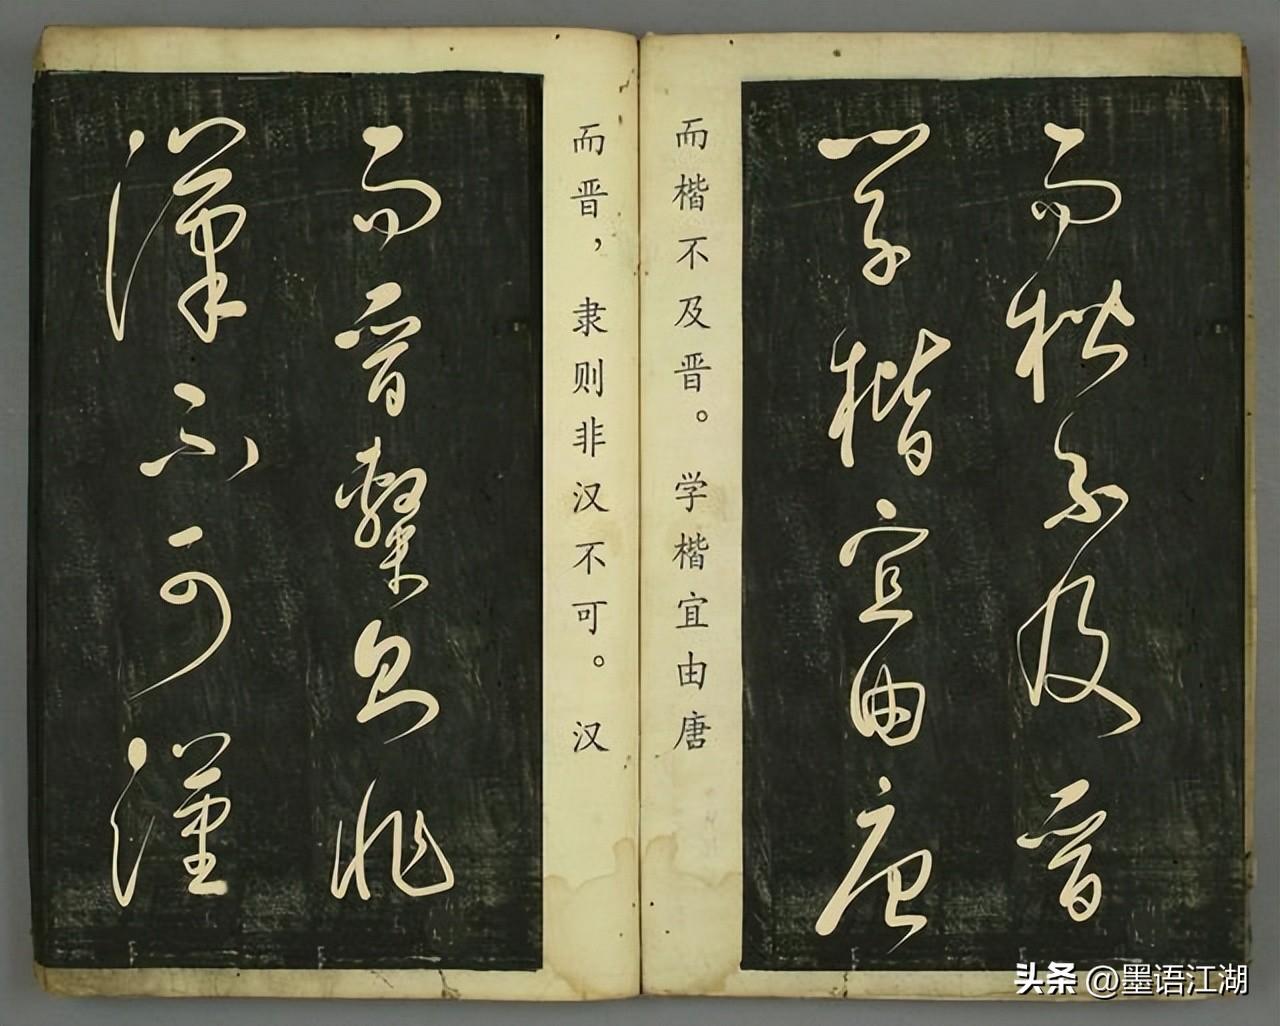 而楷不及晋
学楷宜由唐
而楷不及晋。学楷宜由唐
而晋，隶则非汉不可。汉
而晋隶则非
汉不可汉
头条 @墨语江湖